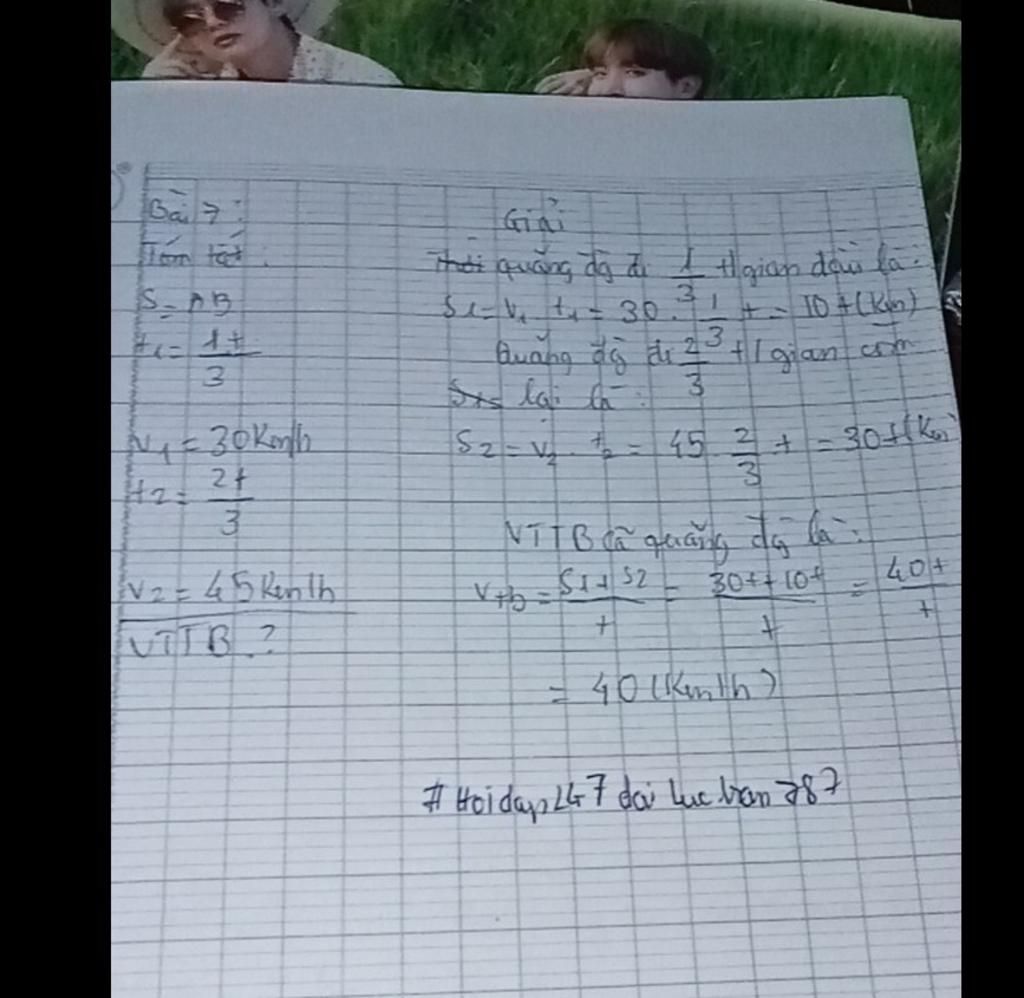 Bài 7:
Tóm tắt:
S = AB
t1 = 1t/3
v1 = 30Km/h
t2 = 2t/3
v2 = 45Km/h
VTTB ?
Giải
quãng đg đi 1/3 t/gian đầu là:
S1 = v1 . t1 = 30 . 1/3 t = 10t (Km)
Quãng đg đi 2/3 t/gian còn
lại là:
S2 = v2 . t2 = 45 2/3 t = 30t (Km)
VTTB cả quãng đg là:
vtb = S1+S2/t = 30t+10t/t = 40t/t
= 40 (Km/h)
# Hoidap247 dai luc ban 787